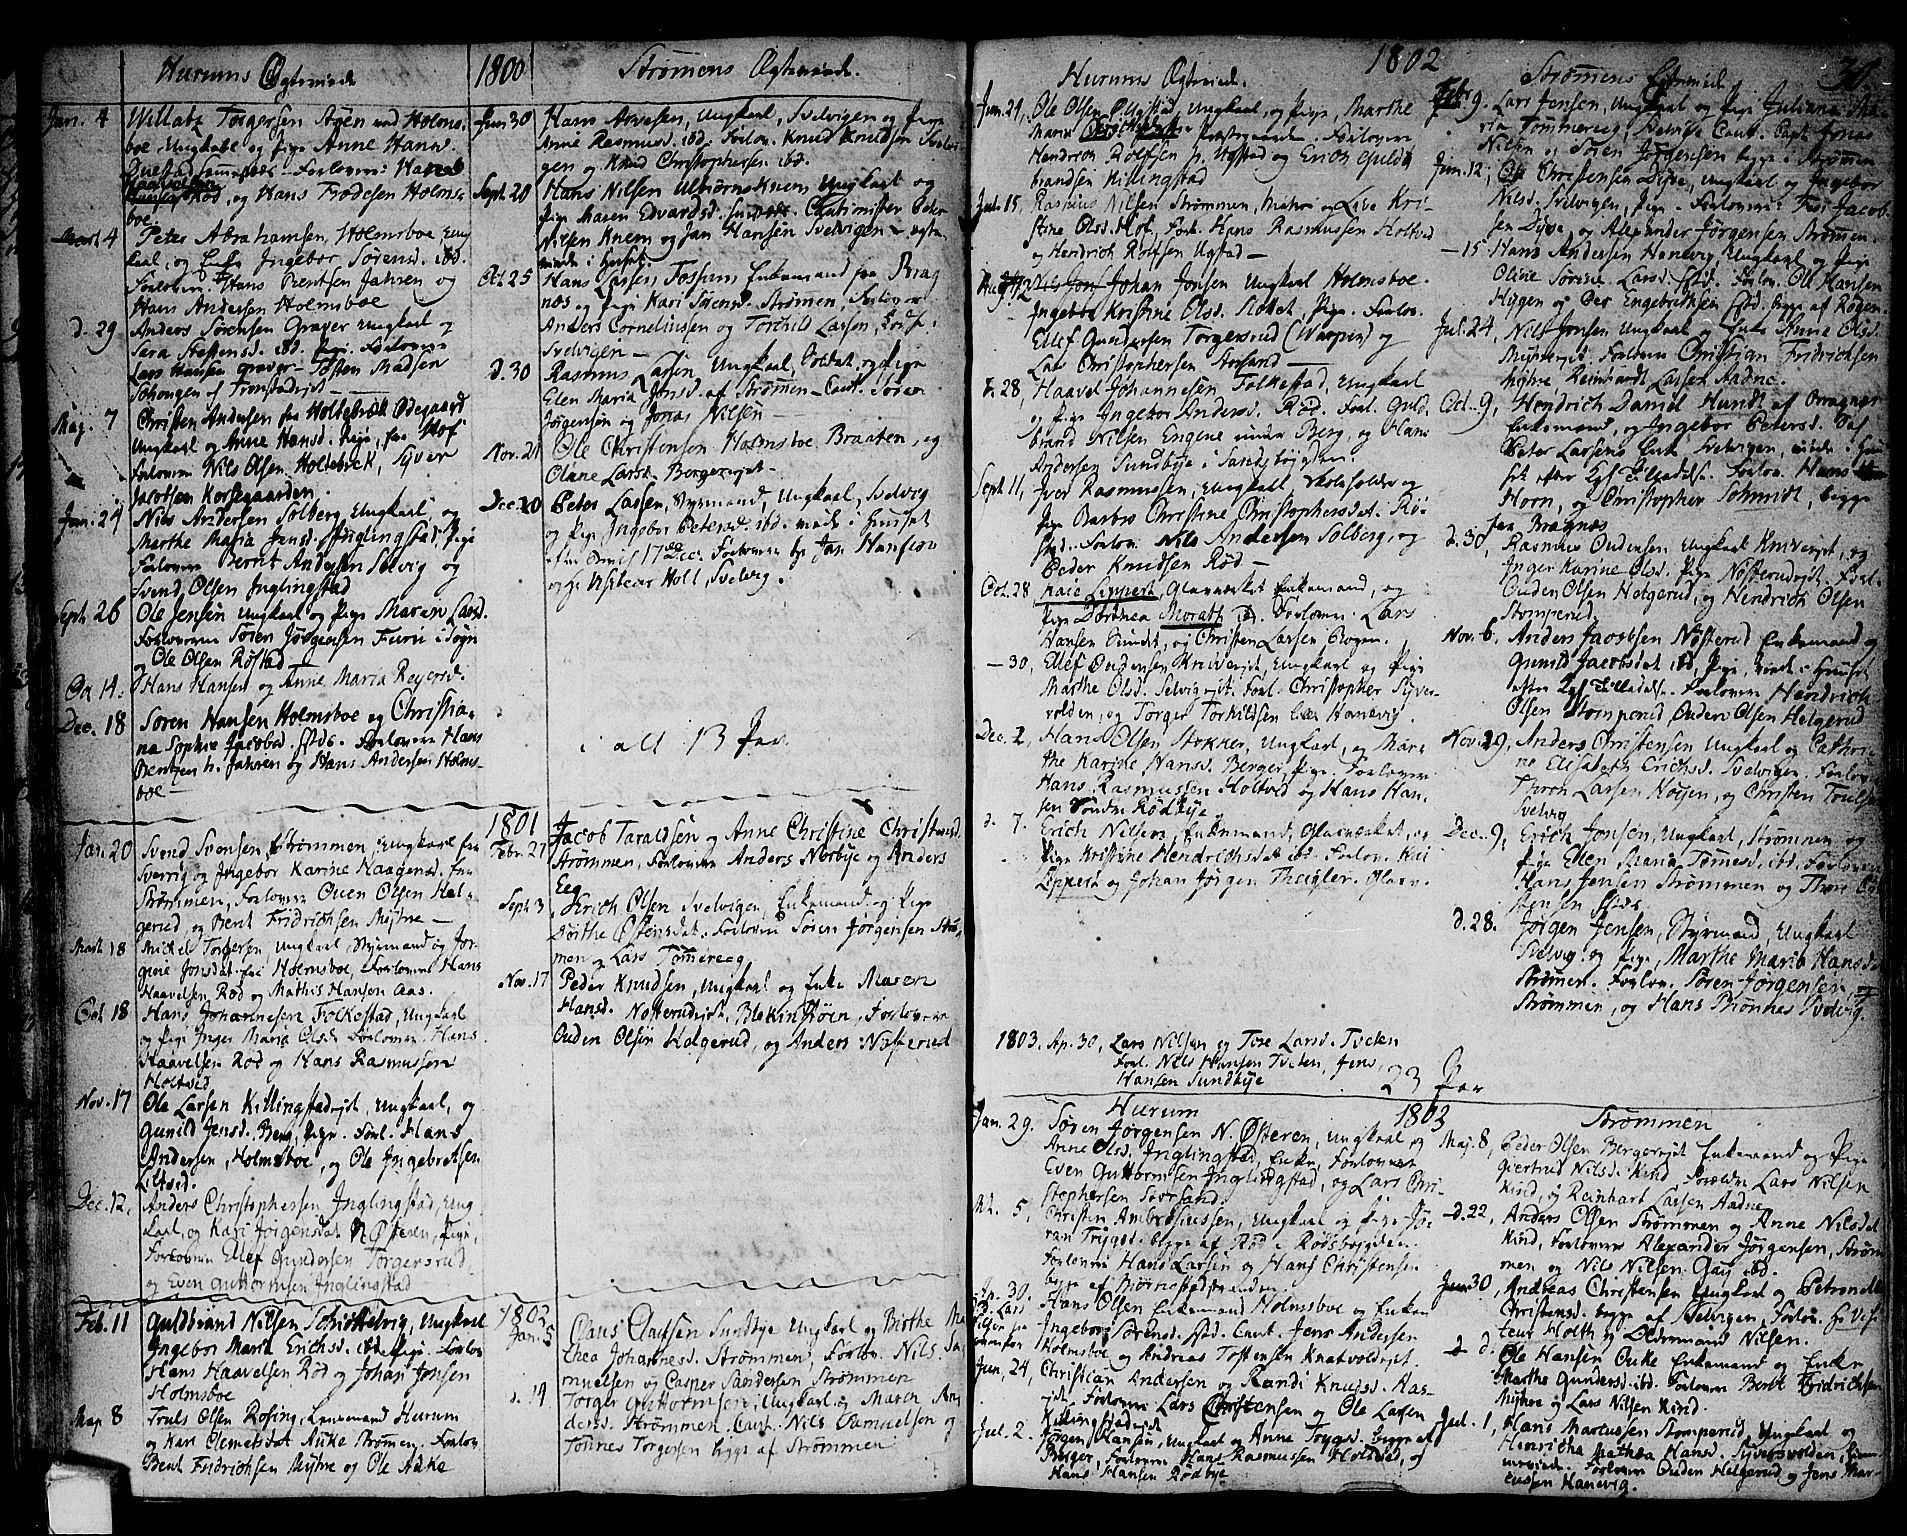 Hurums Ægteviede
1800
Jan. 4 Willatz Torgersen Aaen ved Holms-
boe, Ungkabl og Pige Anne Hans
Forlovere: Hans
Haavelsen Rød, og Hans Frodesen Holms-
boe.
Mart. 4 Peter Abrahamsen, Holmsboe, Ung-
kaal, og Enke Ingebor Sörensd. ibd.
Forlovere Hans Bentsen Jahren og
Hans Andersen Holmsboe
d. 29 Anders Sörensen Graver Ungkarl og
Sara Steffensd. ibd. Pige. Forlovere
Lars Hansen graver - Tosten Madsen
Maj. 7 Christen Andersen fra Holtebrek Ødegaard
Ungkarl og Anne Hansd. Pige, fra Hof
Forlovere Nils Olsen Holtebrek, Syver
Jacobsen Korsegaarden.
Jun. 24 Nils Andersen Solberg, Ungkarl og
Marthe Maria Jensd. Inglingstad, Pige
Forlovere Bernt Andersen Selvig og
Svend Olsen Inglingstad
Sept. 26 Ole Jensen Ungkarl og Pige Maren Larsd.
Forlovere Sören Jörgensen Furu i Sogn
og Ole Olsen Röstad
Oct. 14. Hans Hansen og Anne Maria Reyersd.
Dec. 18 Sören Hansen Holmsboe og Christia-
na Sophie Jacobsd. sstds. Forlovere Hans
Bentzen h. Jahren og Hans Andersen Holms-
boe
Strømens Ægteviede.
Jun 30 Hans Arvesen, Ungkarl, Svelvigen og Pige
Anne Rasmusd. ibd. Forlov. Knud Knudsen Svelvi-
gen og Knud Christophersen ibd.
Sept. 20 Hans Nilsen Ulviörns Knem Ungkarl og
Pige Maren Edvardsd. Cautionister Peter
Nilsen Knem og Jan Hansen Svelvigen - egte-
viede i huset.
Oct. 25 Hans Larsen Fossum, Enkemand fra Brag-
næs og Pige Kari Svend. Strømen, Forlover
Anders Corneliussen og Torchild Larsen,
Svelvigen
d. 30 Rasmus Larsen, Ungkarl, Soldat, og Pige
Elen Maria Jonsd. af Strømen - Caut. Sören
Jörgensen og Jonas Nilsen
Nov. 21 Ole Christensen Holmsboe Braaten, og
Oliane Larsd. Bergerejet
Dec. 20 Peter Larsen, Styrmand, Ungkarl, Svelvig
og Pige Ingebor Petersd. ibd. viede i Huuset
efter 17 Dec. Forlovere hr Jan Hansen
og Holt, Svelvig.
i alt 13 Par
1801
Jan. 20 Svend Svensen, Strømmen, Ungkarl fra
Sverrig og Ingebor Karine Haagensd. fra
Strømmen, Forlovere Ouen Olsen Hel-
gerud og Bent Fridrichsen Myhre
Mart. 18 Mickel Torgersen, Ungkarl, Styrmand og Jor-
gine Jonsdat. fra Holmsboe, Forlovere Hans
Haavelsen Rød og Mathis Hansen Aas.
Oct. 18 Hans Johannesen Folkestad, Ungkarl
og Pige Inger Maria Olsd. Forlovere Hans
Haavelsen Rød og Hans Rasmussen
Holtvid
Nov. 17 Ole Larsen Killingstadejet, Ungkarl, og
Gunild Jensd. Berg, Pige. Forl. Hans
Andersen, Holmsboe, og Ole Ingebretsen
Dec. 12, Anders Christophersen Inglingstad, Ung-
karl, og Kari Jörgensdat. N. Østeren, Pige,
Forlovere Ellef Gundersen Torgersrud,
og Even Guttormsen Inglingstad
Febr. 27 Jacob Taraldsen og Anne Christine Christensd.
Strömmen, Forlovere Anders Nordbye og Anders
Eeg.
Sept. 3 Erich Olsen Svelvigen, Enkemand, og Pige
Dorthe Østensdat. Forlovere Sören Jörgensen Strö-
men og Lars Tömereeg
Nov. 17 Peder Knudsen, Ungkarl og Enke Maren
Hansd. Nøsterudejet, Forlovere
Ouden Olsen Helgerud, og Anders Nøsterud
1802
Feb. 11 Guldbrand Nilsen Schiottelvig, Ungkarl
Ingebor Maria Erichsd. ibd. Pige. Forlov.
Hans Haavelsen Rød og Johan Jonsen
Holmsboe
Maj. 8 Troels Olsen Rosing, Enkemand Hurum
og Kari Olmelsdat Auke Strømen. Forlov.
Bent Fridrichsen Myhre og Ole Auke
Jan. 5 Claus Clausen Sundbye Ungkarl og Birthe Ma-
thea Johannesd. Strømmen, Forlov. Nils Sa-
muelsen og Casper Sandersen Strömmen
d. 14 Torger Guttormsen, Ungkarl og Maren An-
dersd. Strømmen, Caut. Nils Samuelsen og
Tönnes Torgersen begge af Strømmen
Hurums Ægteviede.
1802
Jun. 24, Ole Olsen Ungkarl, og Pige, Marthe
Forlovere
Hendrich Rolfsen p. Ugstad og Enon Guld-
brandsen Killingstad
Jul. 15, Rasmus Nilsen Strömmen, og Live Kri-
stine Olsd. Hof, Forl. Hans Rasmussen Holtvid
og Hendrich Rolfsen Ugstad
Aug. 12 Johan Jonsen Ungkarl Holmsboe.
Ingebor Kristine Olsd. Slottet, Pige. Forlov.
Ellef Gundersen Torgersrud og
Lars Christophersen Storsand
d. 28, Haavel Johannesen Folkestad, Ungkarl
og Pige Ingebor Andersd. Röd. Forl. Guld-
brand Nilsen Engene under Berg, og Hans
Andersen Sundbye i Sandsbygden.
Sept. 11, Iver Rasmussen, Ungkarl Skoleholder og
Pige Barbro Christine Christophersdat. Rö-
Forlov. Nils Andersen Solberg, og
Peder Knudsen Rød
Oct. 28 Kaie Lippert Glasværket Enkemand, og
Pige Dorthea Morath ibd. Forlovere Lars
Hansen Sundet, og Christen Larsen Bogen.
- 30, Ellef Oudensen Kniverejet, Ungkarl og Pige
Marthe Olsd. Selvigejet. Forl. Christopher Syver-
volden, og Torger Torkildsen Hanevig.
Dec. 2, Hans Olsen Stokker, Ungkarl, og Mar-
the Karine Hansd. Berger, Pige. Forlovere
Hans Rasmussen Holtvid og Hans Han-
sen Søndre Rødbye
d. 7. Erich Nilsen, Enkemand, Glasværket, og
Pige Kristine Hendrichsdat ibd. Forlov. Kai
Lippert og Johan Jörgen Thaigler. Glasv.
1803. Ap. 30, Lars Nilsen og Tore Larsd. Tveten
Forl. Nils Hansen Tveten, Jens
Hansen Sundbye
23 Par
Strømmens Ægteviede
30.
Feb. 9. Lars Jensen, Ungkarl og Pige Juliana
Tömmereeg, Svelvig Caut. Capt. Jonas
Nilsen og Sören Jörgensen begge i Strömmen
Jun. 12, Ole Christensen Dyve, Ungkarl og Ingebor
Nilsd. Svelvigen, Pige - Forlovere Jacob-
sen Dyve, og Alexander Jörgensen Strømmen.
- 15 Hans Andersen Henevig, Ungkarl og Pige
Oline Sörine Larsd. Forlov. Ole Hansen
Hygen og Per Engebretsen ibd. begge af Røgen.
Jul. 24, Nils Jonsen Ungkarl og Enke Anne Olsd.
Myhrejet, Forlovere Christian Fridrichsen
Myhre Reinhardt Larsen Aadne.
Oct. 9, Hendrich Daniel Hundt af Bragnæs
Enkemand, og Ingebor Petersd.
Peter Larsens Enke Svelvigen, viede i Huu-
set efter Kgl. Tilladelse. Forlov. Hans
Horn, og Christopher Schmidt, begge
fra Bragnæs
d. 30, Rasmus Oudensen Ungkarl Kniverejet, og
Inger Karine Olsd. Pige Nøsterudejet. Forl.
Ouden Olsen Helgerud, og Hendrich Olsen
Stomperud.
Nov. 6, Anders Jacobsen Nøsterud Enkemand og
Gunild Jacobsdat ibd. Pige, viede i Huuset
efter Kgl. Tilladelse. Forlovere Hendrich
Olsen Stomperud Ouden Olsen Helgerud
Nov. 29, Anders Christensen Ungkarl og Cathri-
ne Elisabeth Erichsd. Svelvigen. Forlov.
Thron Larsen Höyen, og Christen Troelsen
Svelvig
Dec. 9, Erich Jonsen, Ungkarl, Strømmen og
Pige Ellen Maria Tømesd. ibd. Forlovere
Hans Jensen Strømmen og Thore
stensen sstds.
d. 28. Jørgen Jensen, Styrmand, Ungkarl
Svelvig og Pige, Marthe Maria Hansd.
Strømen. Forlov. Sören Jørgensen
Strømmen, og Hans Brönnes Svelvig.
Hurum
1803
Jan. 29. Søren Jørgensen N. Østeren, Ungkarl og
Anne Olsd. Inglingstad, Enke, Forlovere
Even Guttormsen Inglingstad, og Lars Chri-
stophersen Storsand.
Mt. 5, Christen Ambrosiussen, Ungkarl og Pige Jö-
ran Trygsd. begge af Rød i Rødsbygden.
Forlovere Hans Larsen og Hans Christensen
begge af Biørnestadstranden.
Ap. 30. Hans Olsen Enkemand Holmsboe og Enken
Ingebor Sörensd. sstd. Caut. Jens Andersen
Holmsboe og Andreas Tostensen Knatvoldejet.
Jun. 24, Christian Andersen og Randi Knudsd. Aas-
ejet, Forlovere Lars Christensen og Ole Larsen
Killingstadejet
Jul. 2. Jörgen Hansen, Ungkarl og Anne Trygsd. begge af
Berger, Forlovere Hans Rasmussen Holtvid, og
Hans Hansen Rødbye
Strømmen
Maj. 8, Peder Olsen Bergerejet Enkemand og Pige
Giertrud Nilsd. Kind, Forlovere Lars Nilsen
Kind, og Reinhart Larsen Aadne
d. 22, Anders Olsen Strømmen og Anne Nilsdat
Kind, Forlovere Alexander Jørgensen, Strøm-
men og Nils Nilsen Gay ibd.
Jun. 30, Andreas Christensen Ungkarl og Petronelle
Christensd. begge af Svelvigen, Forlov. Hr Visi-
teur Holth og Oldermand Nilsen.
d. d. Ole Hansen Ouke Enkemand og Enke
Marthe Gundersd. ibd. Forlovere Bent Fridrichsen
Myhre og Lars Nilsen Kind.
Jul. 1, Hans Martussen Stomperud, Ungkarl og
Henricha Mathea Hansd. Syversvolden,
Forlovere Ouden Helgerud og Jens Mar-
tussen Hanevig.